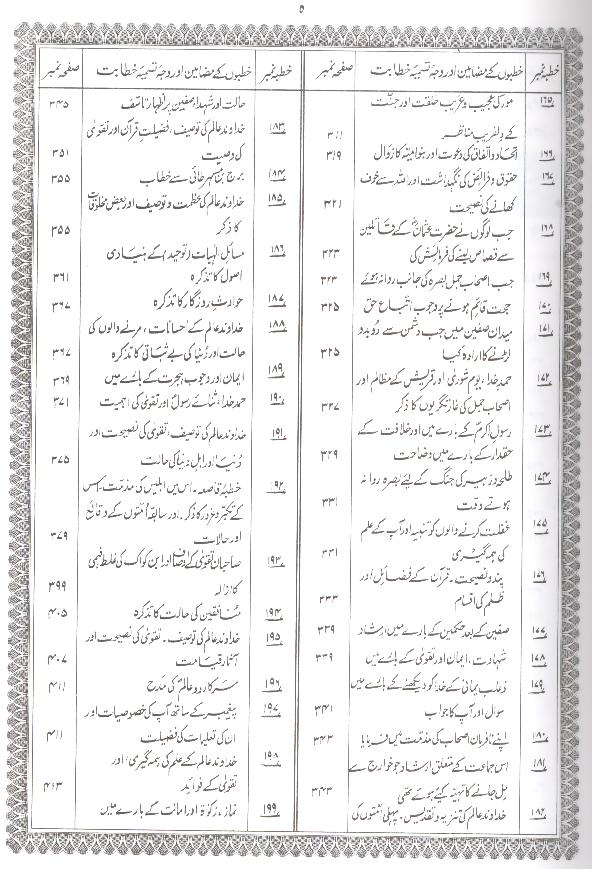 ۵
خطبہ نمبر خطبوں کے مضامین اور وجہ تسمیۂ خطابت صفحہ نمبر
۱۶۵ مور کی عجیب و غریب خلقت اور جنّت
کے دلفریب مناظر ۳۱۱
۱۶۶ اتحاد و اتفاق کی دعوت اور بنو امیہ کا زوال ۳۱۹
۱۶۷ حقوق و فرائض کی نگہداشت اور اللہ سے خوف
کھانے کی نصیحت ۳۲۱
۱۶۸ جب لوگوں نے حضرت عثمانؓ کے قاتلین
سے قصاص لینے کی فرمائش کی ۳۲۳
۱۶۹ جب اصحاب جمل بصرہ کی جانب روانہ ہوئے ۳۲۳
۱۷۰ حجت قائم ہونے پر وجوب اتباع حق ۳۲۵
۱۷۱ میدان صفین میں جب دشمن سے دوبدو
لڑنے کا ارادہ کیا ۳۲۵
۱۷۲ حمد خدا، یوم شوریٰ اور قریش کے مظالم اور
اصحاب جمل کی غارتگریوں کا ذکر ۳۲۷
۱۷۳ رسول اکرمؐ کے بارے میں اور خلافت کے
حقدار کے بارے میں وضاحت ۳۲۹
۱۷۴ طلحہ و زبیر کی جنگ کے لئے بصرہ روانہ
ہوتے وقت ۳۳۱
۱۷۵ غفلت کرنے والوں کو تنبیہ اور آپ کے علم
کی ہمہ گیری ۳۳۱
۱۷۶ پند و نصیحت۔ قرآن کے فضائل اور
ظلم کی اقسام ۳۳۳
۱۷۷ صفین کے بعد حکمین کے بارے میں ارشاد ۳۳۹
۱۷۸ شہادت، ایمان اور تقویٰ کے بارے میں ۳۳۹
۱۷۹ ذعلب یمانی کے خدا کو دیکھنے کے بارے میں
سوال اور آپ کا جواب ۳۴۱
۱۸۰ اپنے نافرمان اصحاب کی مذمت میں فرمایا ۳۴۳
۱۸۱ اس جماعت کے متعلق ارشاد جو خوارج سے
مل جانے کا تہیّہ کیے ہوئے تھی ۳۴۳
۱۸۲ خداوند عالم کی تنزیہ و تقدیس۔ پہلی امتوں کی
خطبہ نمبر خطبوں کے مضامین اور وجہ تسمیۂ خطابت صفحہ نمبر
حالت اور شہداءِ صفین پر اظہار تاسّف ۳۴۵
۱۸۳ خداوند عالم کی توصیف، فضیلتِ قرآن اور تقویٰ
کی وصیت ۳۵۱
۱۸۴ برج بن مسہر طائی سے خطاب ۳۵۵
۱۸۵ خداوند عالم کی عظمت و توصیف اور بعض مخلوقات
کا ذکر ۳۵۵
۱۸۶ مسائل الٰہیات (توحید) کے بنیادی
اصول کا تذکرہ ۳۶۱
۱۸۷ حوادثِ روزگار کا تذکرہ ۳۶۷
۱۸۸ خداوند عالم کے احسانات، مرنے والوں کی
حالت اور دُنیا کی بے ثباتی کا تذکرہ ۳۶۷
۱۸۹ ایمان اور وجوب ہجرت کے بارے میں ۳۶۹
۱۹۰ حمدِ خدا، ثنائے رسولؐ اور تقویٰ کی اہمیت ۳۷۱
۱۹۱ خداوند عالم کی توصیف، تقویٰ کی نصیحت اور
دُنیا اور اہل دنیا کی حالت ۳۷۵
۱۹۲ خطبۂ قاصعہ۔ اس میں ابلیس کی مذمت۔ اس
کے تکبر و غرور کا ذکر۔ اور سابقہ امتوں کے وقائع
اور حالات ۳۷۹
۱۹۳ صاحبانِ تقویٰ کے اوصاف اور ابن کوا کی غلط فہمی
کا ازالہ ۳۹۹
۱۹۴ منافقین کی حالت کا تذکرہ ۴۰۵
۱۹۵ خداوند عالم کی توصیف۔ تقویٰ کی نصیحت اور
آثارِ قیامت ۴۰۷
۱۹۶ سرکار دو عالمؐ کی مدح ۴۱۱
۱۹۷ پیغمبر کے ساتھ آپ کی خصوصیات اور
ان کی تعلیمات کی فضیلت ۴۱۱
۱۹۸ خداوند عالم کے علم کی ہمہ گیری اور
تقویٰ کے فوائد ۴۱۳
۱۹۹ نماز، زکوٰۃ اور امانت کے بارے میں